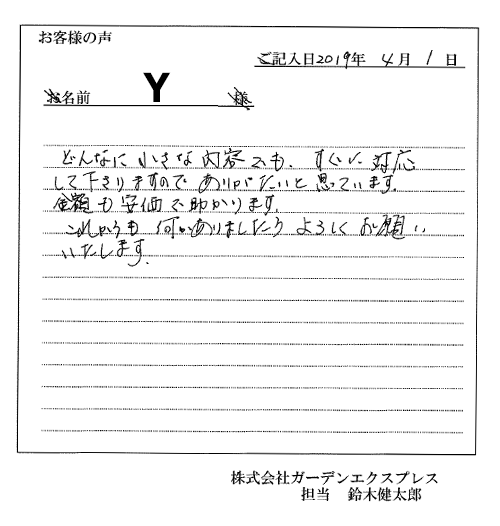 お客様の声
ご記入日2019年 4月 1日
お名前 Y 様
どんなに小さな内容でも、すぐに対応
して下さりますのでありがたいと思っています。
金額も安価で助かります。
これからも何かありましたらよろしくお願い
いたします。
株式会社ガーデンエクスプレス
担当 鈴木健太郎